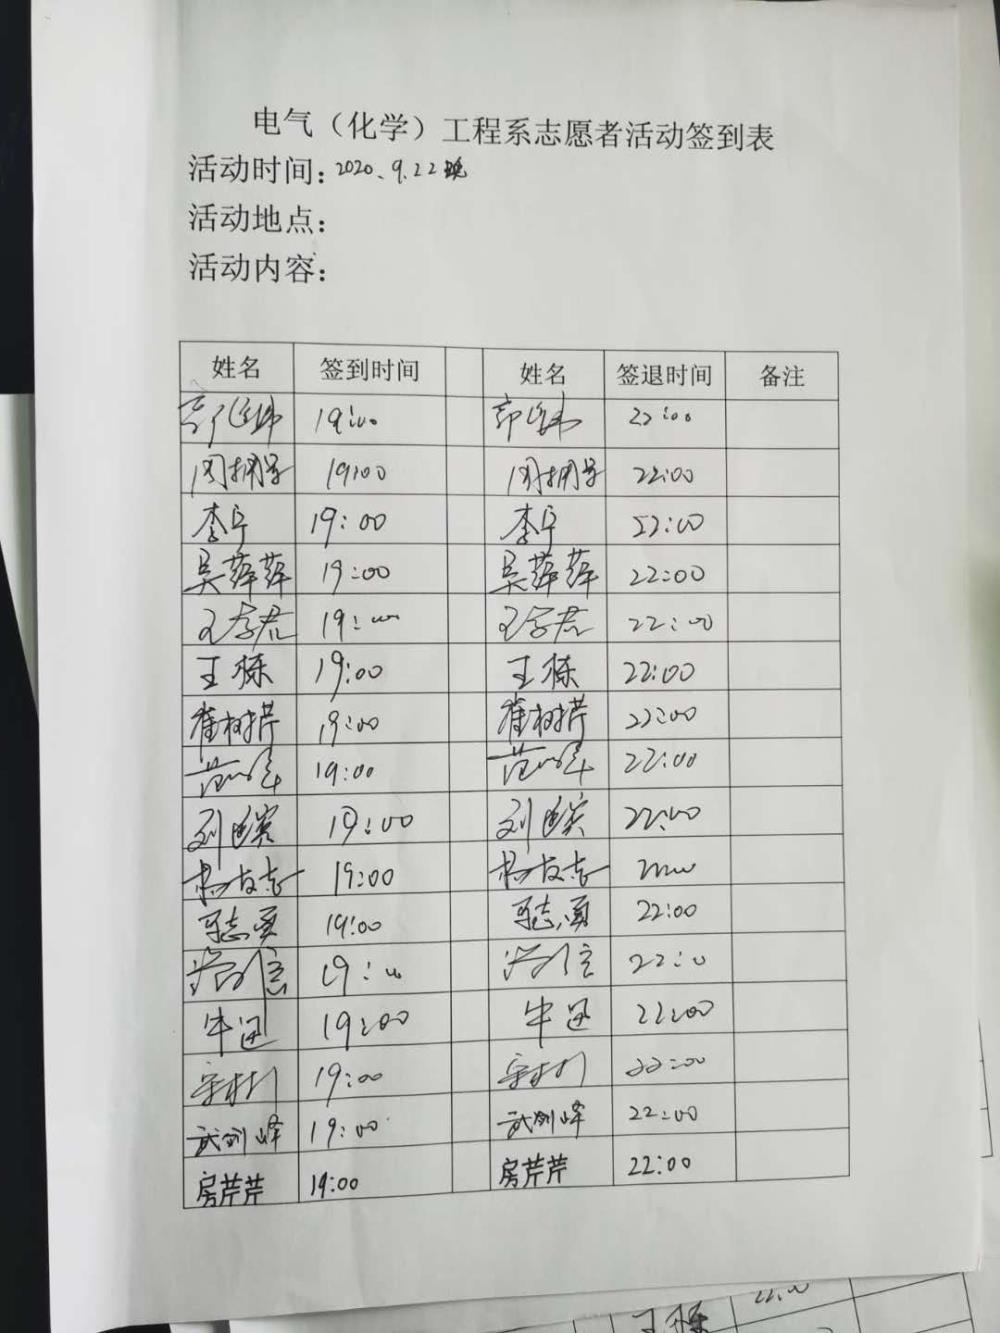 电气（化学）工程系志愿者活动签到表
活动时间：2020.9.22晚
活动地点：
活动内容：
姓名 签到时间 姓名 签退时间 备注
19:00 22:00
周拥军 19:00 周拥军 22:00
李宁 19:00 李宁 22:00
吴萍萍 19:00 吴萍萍 22:00
王 19:00 王 22:00
王栋 19:00 王栋 22:00
崔树芹 19:00 崔树芹 22:00
范 19:00 范 22:00
刘 19:00 刘 22:00
杨友志 19:00 杨友志
马志勇 19:00 马志勇 22:00
19:00 22:00
牛迅 19:00 牛迅 22:00
19:00 22:00
武剑峰 19:00 武剑峰 22:00
房芹芹 19:00 房芹芹 22:00
王栋 22:00